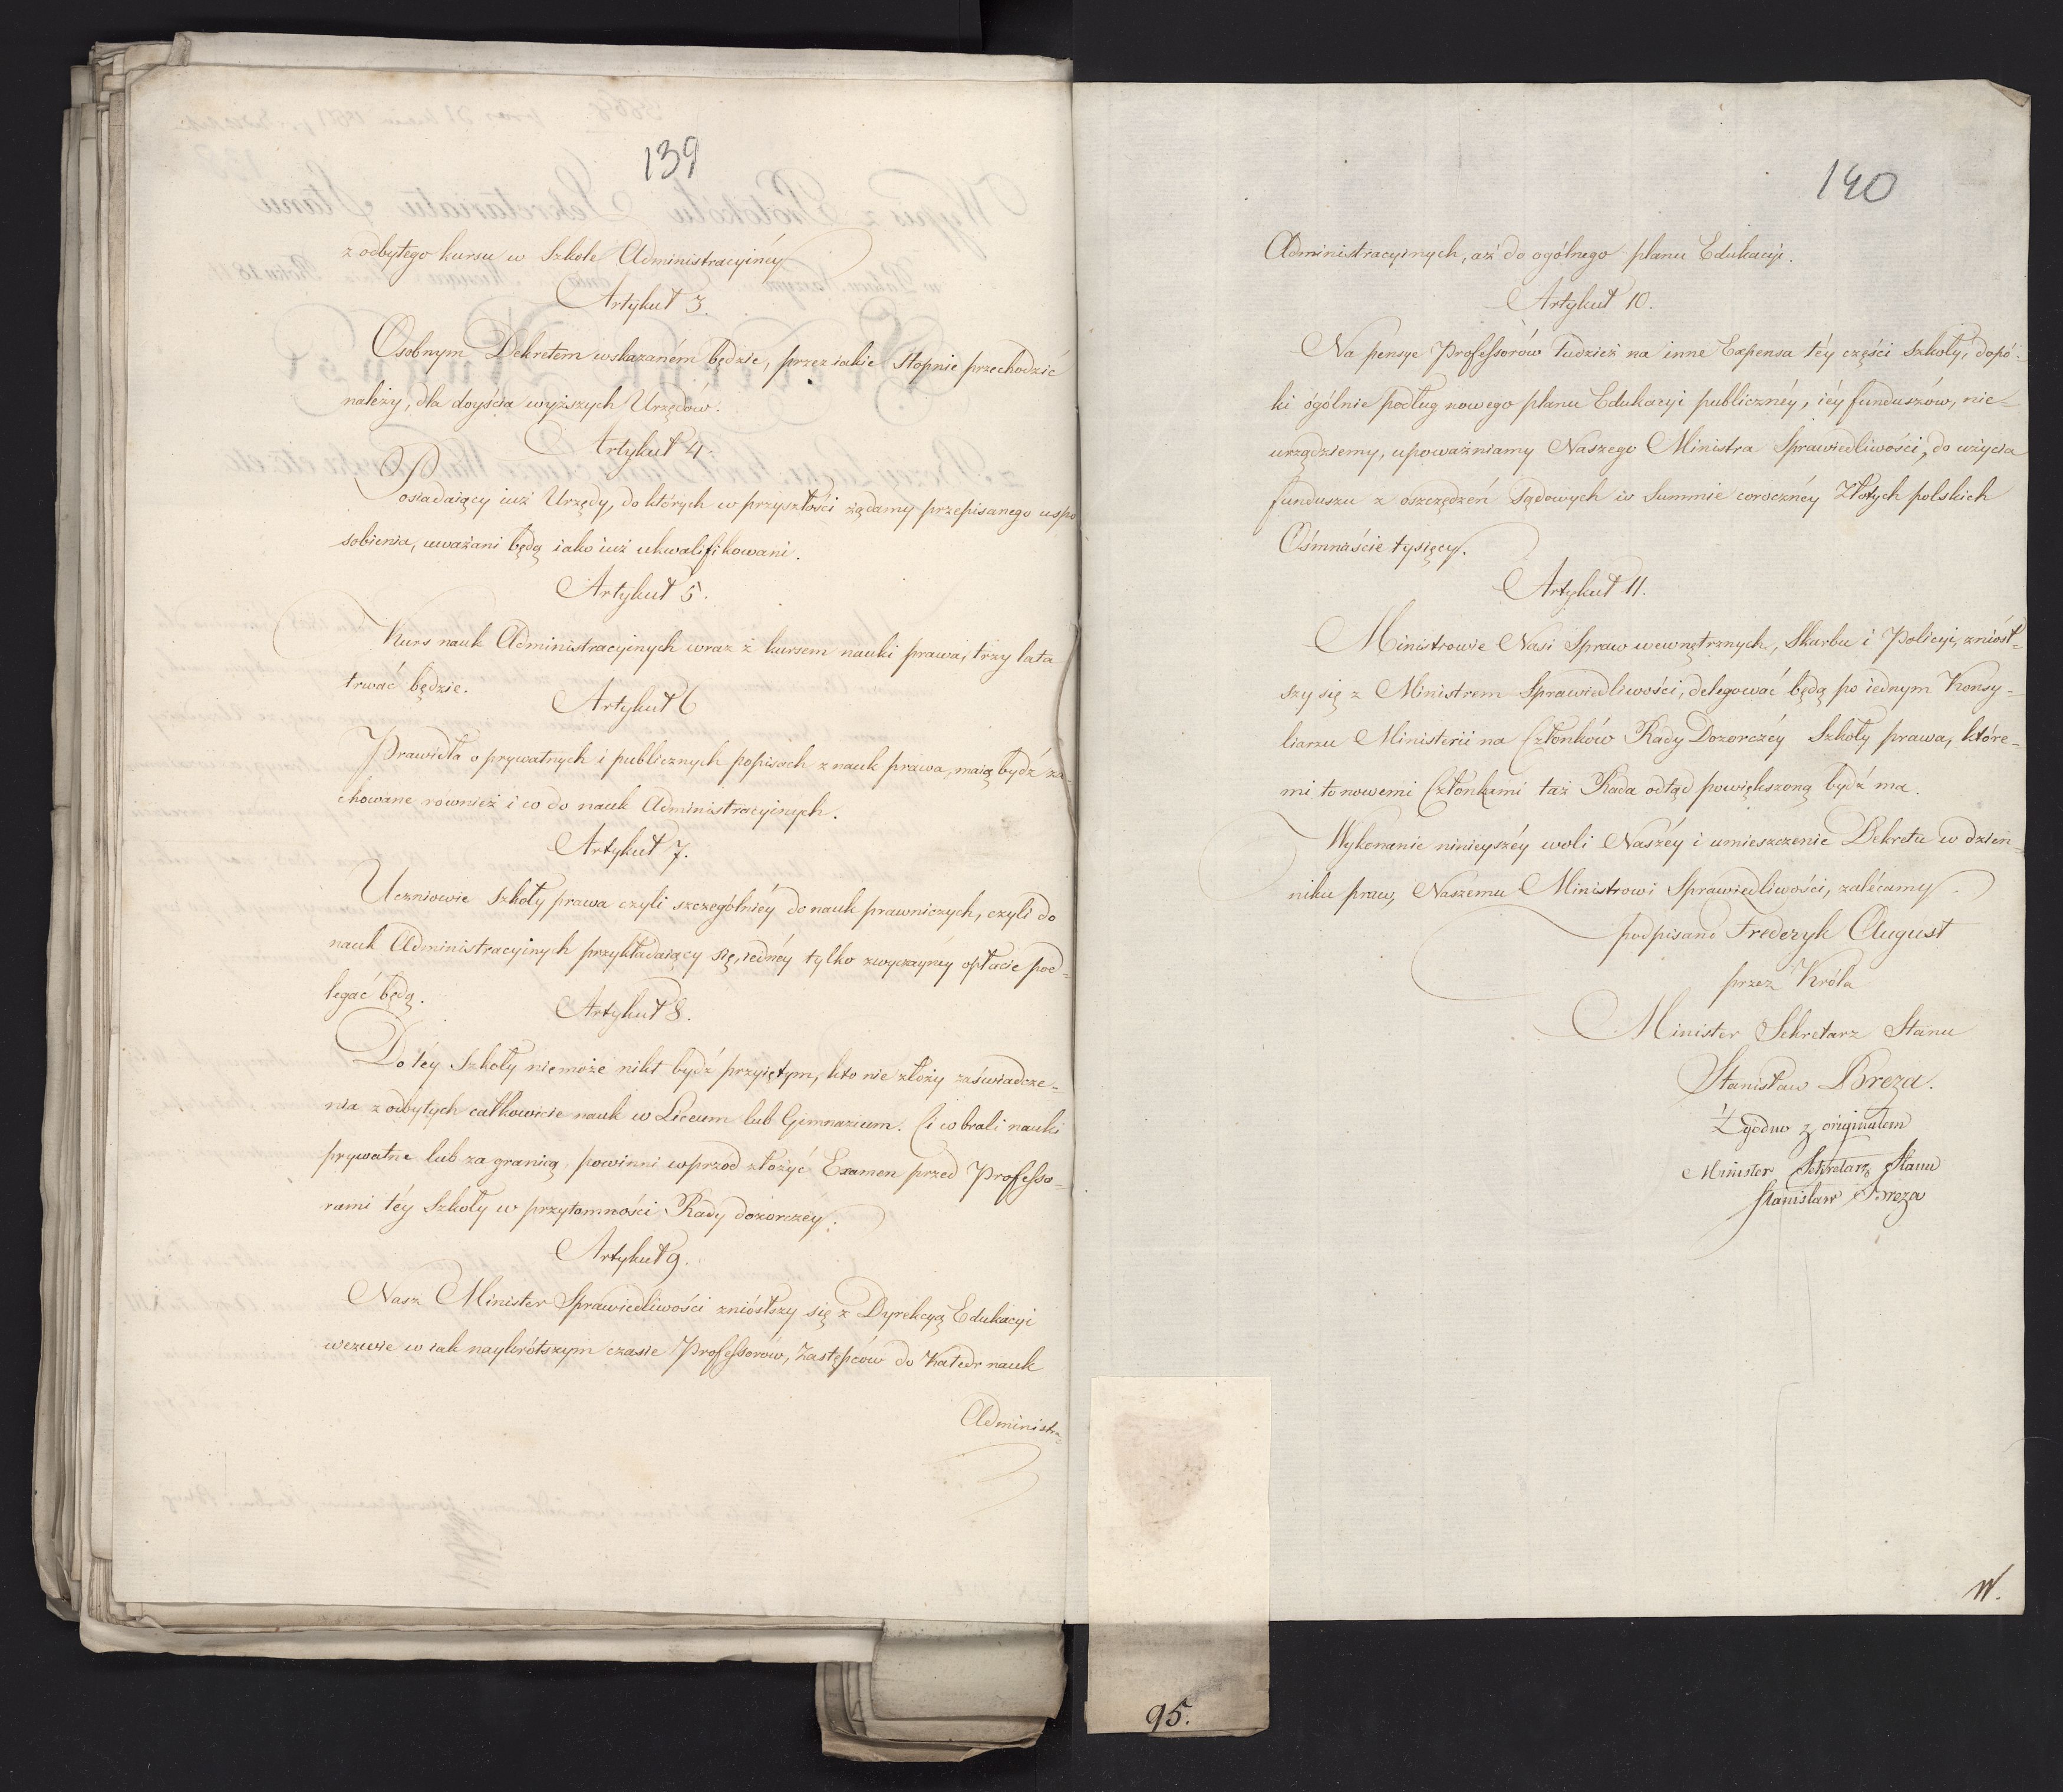 139
z odbytego kursu w Szkole Administracyinéy
Artykuł 3.
Osobnym Dekretem wskazaném będzie, przez iakie Stopnie przechodzić
należy, dla doyścia wyższych Urzędów.
Artykuł 4.
Posiadaiący iuż Urzędy, do których w przyszłości żądamy przepisanego uspo
sobienia, uważani będą iako iuż ukwalifikowani.
Artykuł 5.
Kurs nauk Administracyinych wraz z kursem nauki prawa, trzy lata
trwać będzie.
Artykuł 6
Prawidła o prywatnych i publicznych popisach z nauk prawa, maią bydź za
chowane również i co do nauk Administracyinych.
Artykuł 7.
Uczniowie Szkoły prawa czyli szczególniéy do nauk prawniczych, czyli do
nauk Administracyinych przykładaiący się, iednéy tylko zwyczayney opłacie pod-
legać będą.
Artykuł 8.
Do téy Szkoły niemoże nikt bydź przyiętym, kto nie złoży zaświadcze-
nia z odbytych całkowicie nauk w Liceum lub Gimnazium. Ci co brali nauki
prywatne lub za granicą, powinni wprzod złożyć Examen przed Professo-
rami téy Szkoły w przytomności Rady dozorczéy.
Artykuł 9.
Nasz Minister Sprawiedliwości zniósłszy się z Dyrekcyą Edukacyi
wezwie w iak naykrótszym czasie Professorów, Zastępców do Katedr nauk
Administra-
140
Administracyinych, aż do ogólnego planu Edukacyi.
Artykuł 10.
Na pensye Professorów tudzież na inne Expensa téy części Szkoły, dopó-
ki ogólnie podług nowego planu Edukacyi publicznéy, iéy funduszów, nie-
urządziemy, upoważniamy Naszego Ministra Sprawiedliwości, do użycia
funduszu z oszczędzeń Sądowych w Summie corocznéy Złotych polskich
Ośmnaście tysięcy.
Artykuł 11.
Ministrowie Nasi Spraw wewnętrznych, Skarbu i Policyi, zniósł-
szy się z Ministrem Sprawiedliwości, delegować będą po iednym Konsy-
liarzu Ministerii na Członków Rady Dozorczéy Szkoły prawa, które-
mi to nowemi Członkami taż Rada odtąd powiększoną bydź ma.
Wykonanie ninieyszéy woli Naszéy i umieszczenie Dekretu w dzien-
niku praw, Naszemu Ministrowi Sprawiedliwości, zalécamy.
podpisano Frederyk August
przez Króla
Minister Sekretarz Stanu
Stanisław Breza.
Zgodno z originałem
Minister Sekretarz Stanu
Stanisław Breza
W.
95.